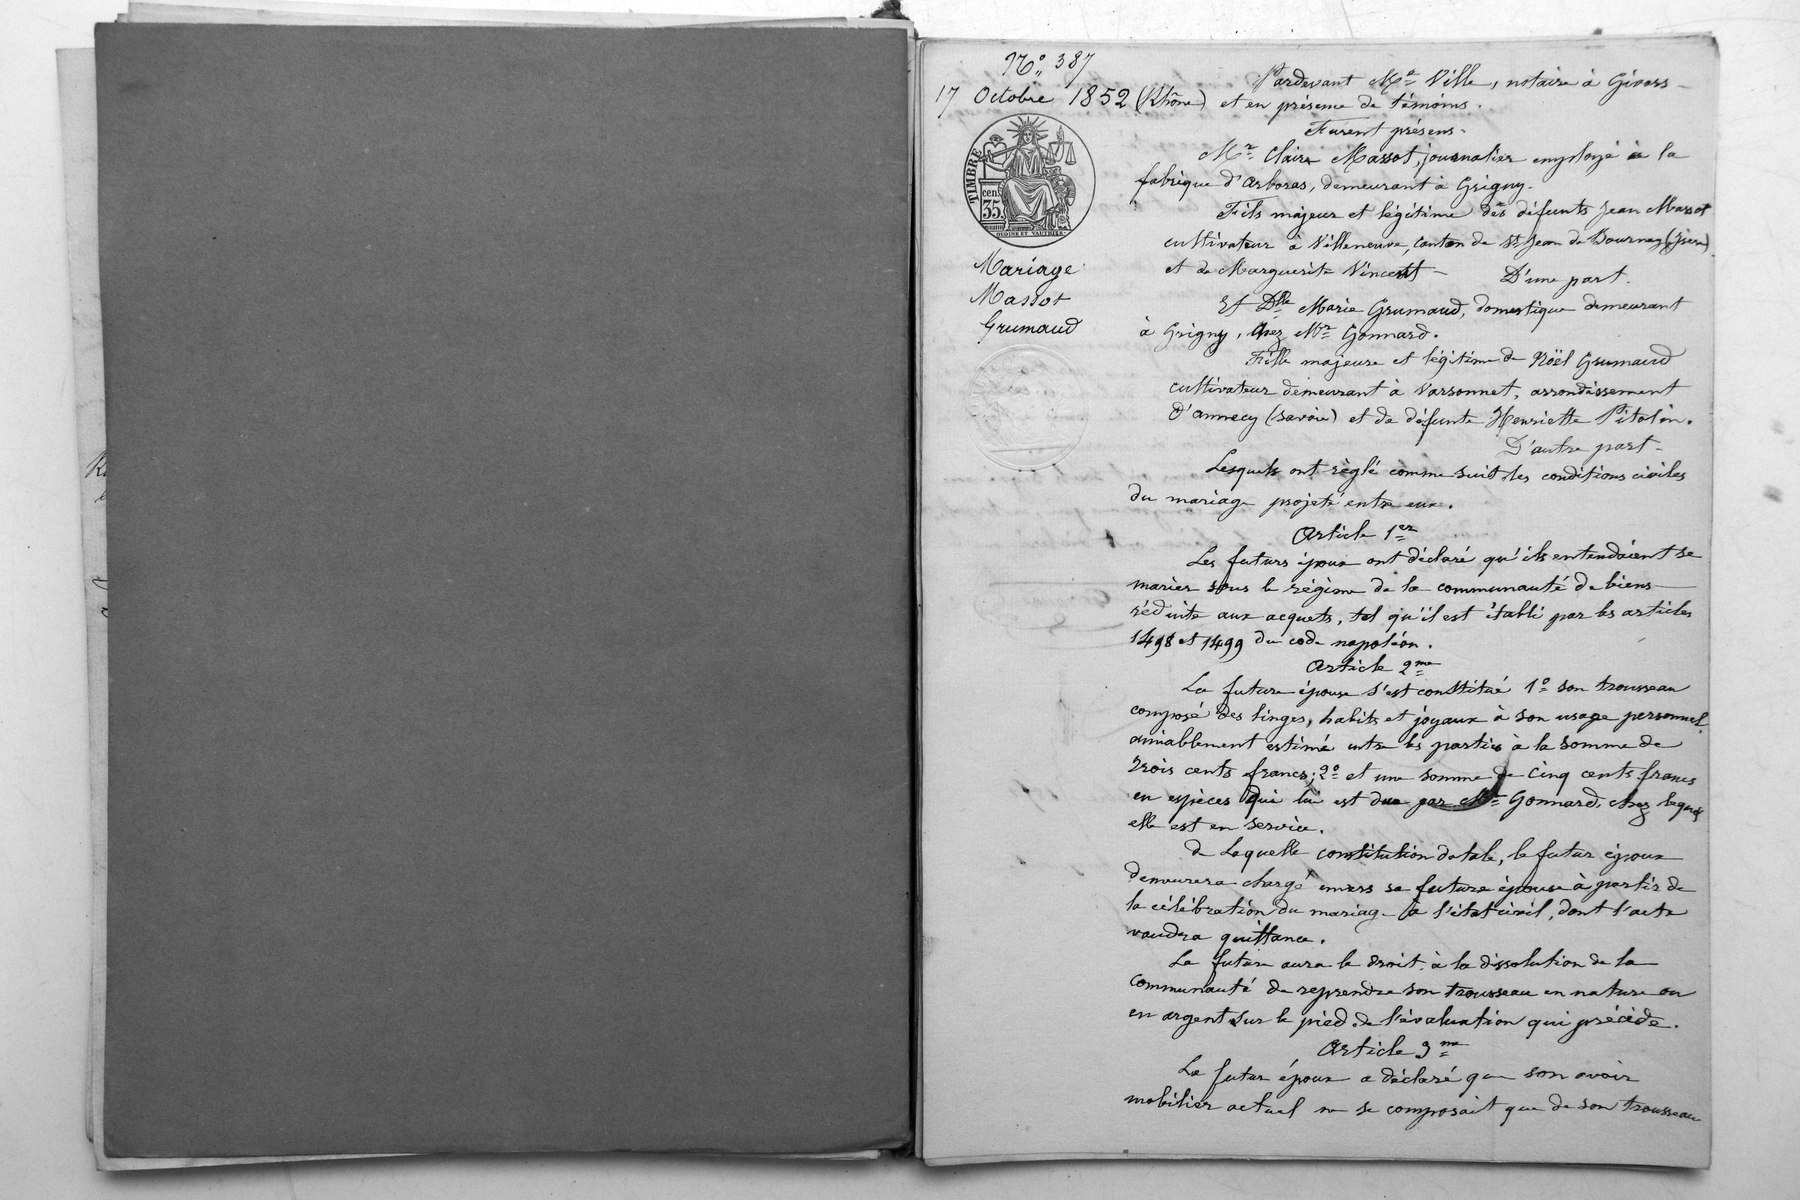 N° 387
17 Octobre 1852
TIMBRE
cen.
35.
Mariage
Massot
Grumaud
Pardevant Me Ville, notaire à Givors
(Rhône) et en présence de témoins.
Furent présens.
Mr Claire Massot, journalier employé à la
fabrique d'arboras, demeurant à Grigny.
Fils majeur et légitime des défunts Jean Massot
cultivateur à Villeneuve, canton de St Jean de Bournay (Isère)
et de Marguerite Vincent – D'une part.
Et Dlle Marie Grumaud, domestique demeurant
à Grigny, chez Mr Gonnard.
Fille majeure et légitime de Nöel Grumaud
cultivateur demeurant à Varsonnet, arrondissement
d'annecy (savoie) et de défunte Henriette Pitolin.
D'autre part –
Lesquels ont règlé comme suit les conditions civiles
du mariage projeté entre eux.
Article 1er
Les futurs époux ont déclaré qu'ils entendaient se
marier sous le régime de la communauté de biens
réduite aux acquets, tel qu'il est établi par les articles
1498 et 1499 du code napoléon.
Article 2me
La future épouse s'est constitué 1° son trousseau
composé des linges, habits et joyaux à son usage personnel,
amiablement estimé entre les parties à la somme de
Trois cents francs; 2° et une somme de Cinq cents francs
en espèces qui lui est due par Mr Gonnard, chez lequel
elle est en service.
de Laquelle constitution dotale, le futur époux
demeurera chargé envers sa future épouse à partir de
la célébration du mariage à l'état civil, dont l'acte
vaudra quittance.
La future aura le droit à la dissolution de la
communauté de reprendre son trousseau en nature ou
en argent sur le pied de l'évaluation qui précède.
Article 3me
Le futur époux a déclaré que son avoir
mobilier actuel ne se composait que de son trousseau